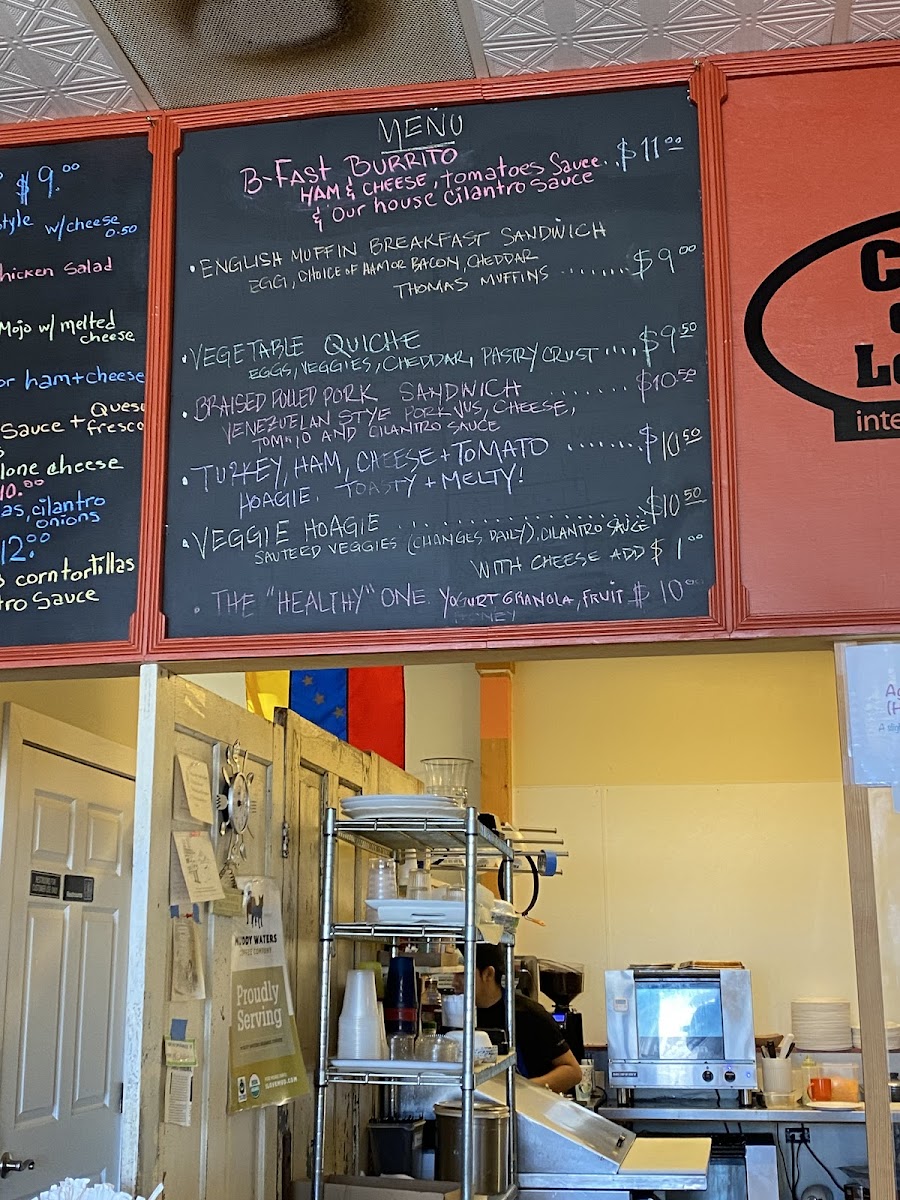 $9.00
style w/cheese
0.50
chicken Salad
Mojo w/ melted
cheese
or ham+cheese
Sauce + Ques
fresco
lone cheese
10.00
as, cilantro
onions
12.00
corn tortillas
tro Sauce
MENU
B-FAST BURRITO
HAM & CHEESE, tomatoes Sauce.. $11.00
& Our house cilantro sauce
• ENGLISH MUFFIN BREAKFAST SANDWICH
EGG, CHOICE OF HAM OR BACON, CHEDDAR
THOMAS MUFFINS ....... $9.00
• VEGETABLE QUICHE
EGGS, VEGGIES, CHEDDAR, PASTRY CRUST .... $9.50
• BRAISED PULLED PORK SANDWICH ....... $10.50
VENEZUELAN STYE PORK JUS, CHEESE,
AND CILANTRO SAUCE
• TURKEY, HAM, CHEESE + TOMATO ....... $10.50
HOAGIE. TOASTY + MELTY!
• VEGGIE HOAGIE ................ $10.50
SAUTEED VEGGIES (CHANGES DAILY), CILANTRO SAUCE
WITH CHEESE ADD $1.00
• THE "HEALTHY" ONE. YOGURT GRANOLA, FRUIT $10.00
HONEY
C
Lo
inte
MUDDY WATERS
COFFEE COMPANY
Proudly
Serving